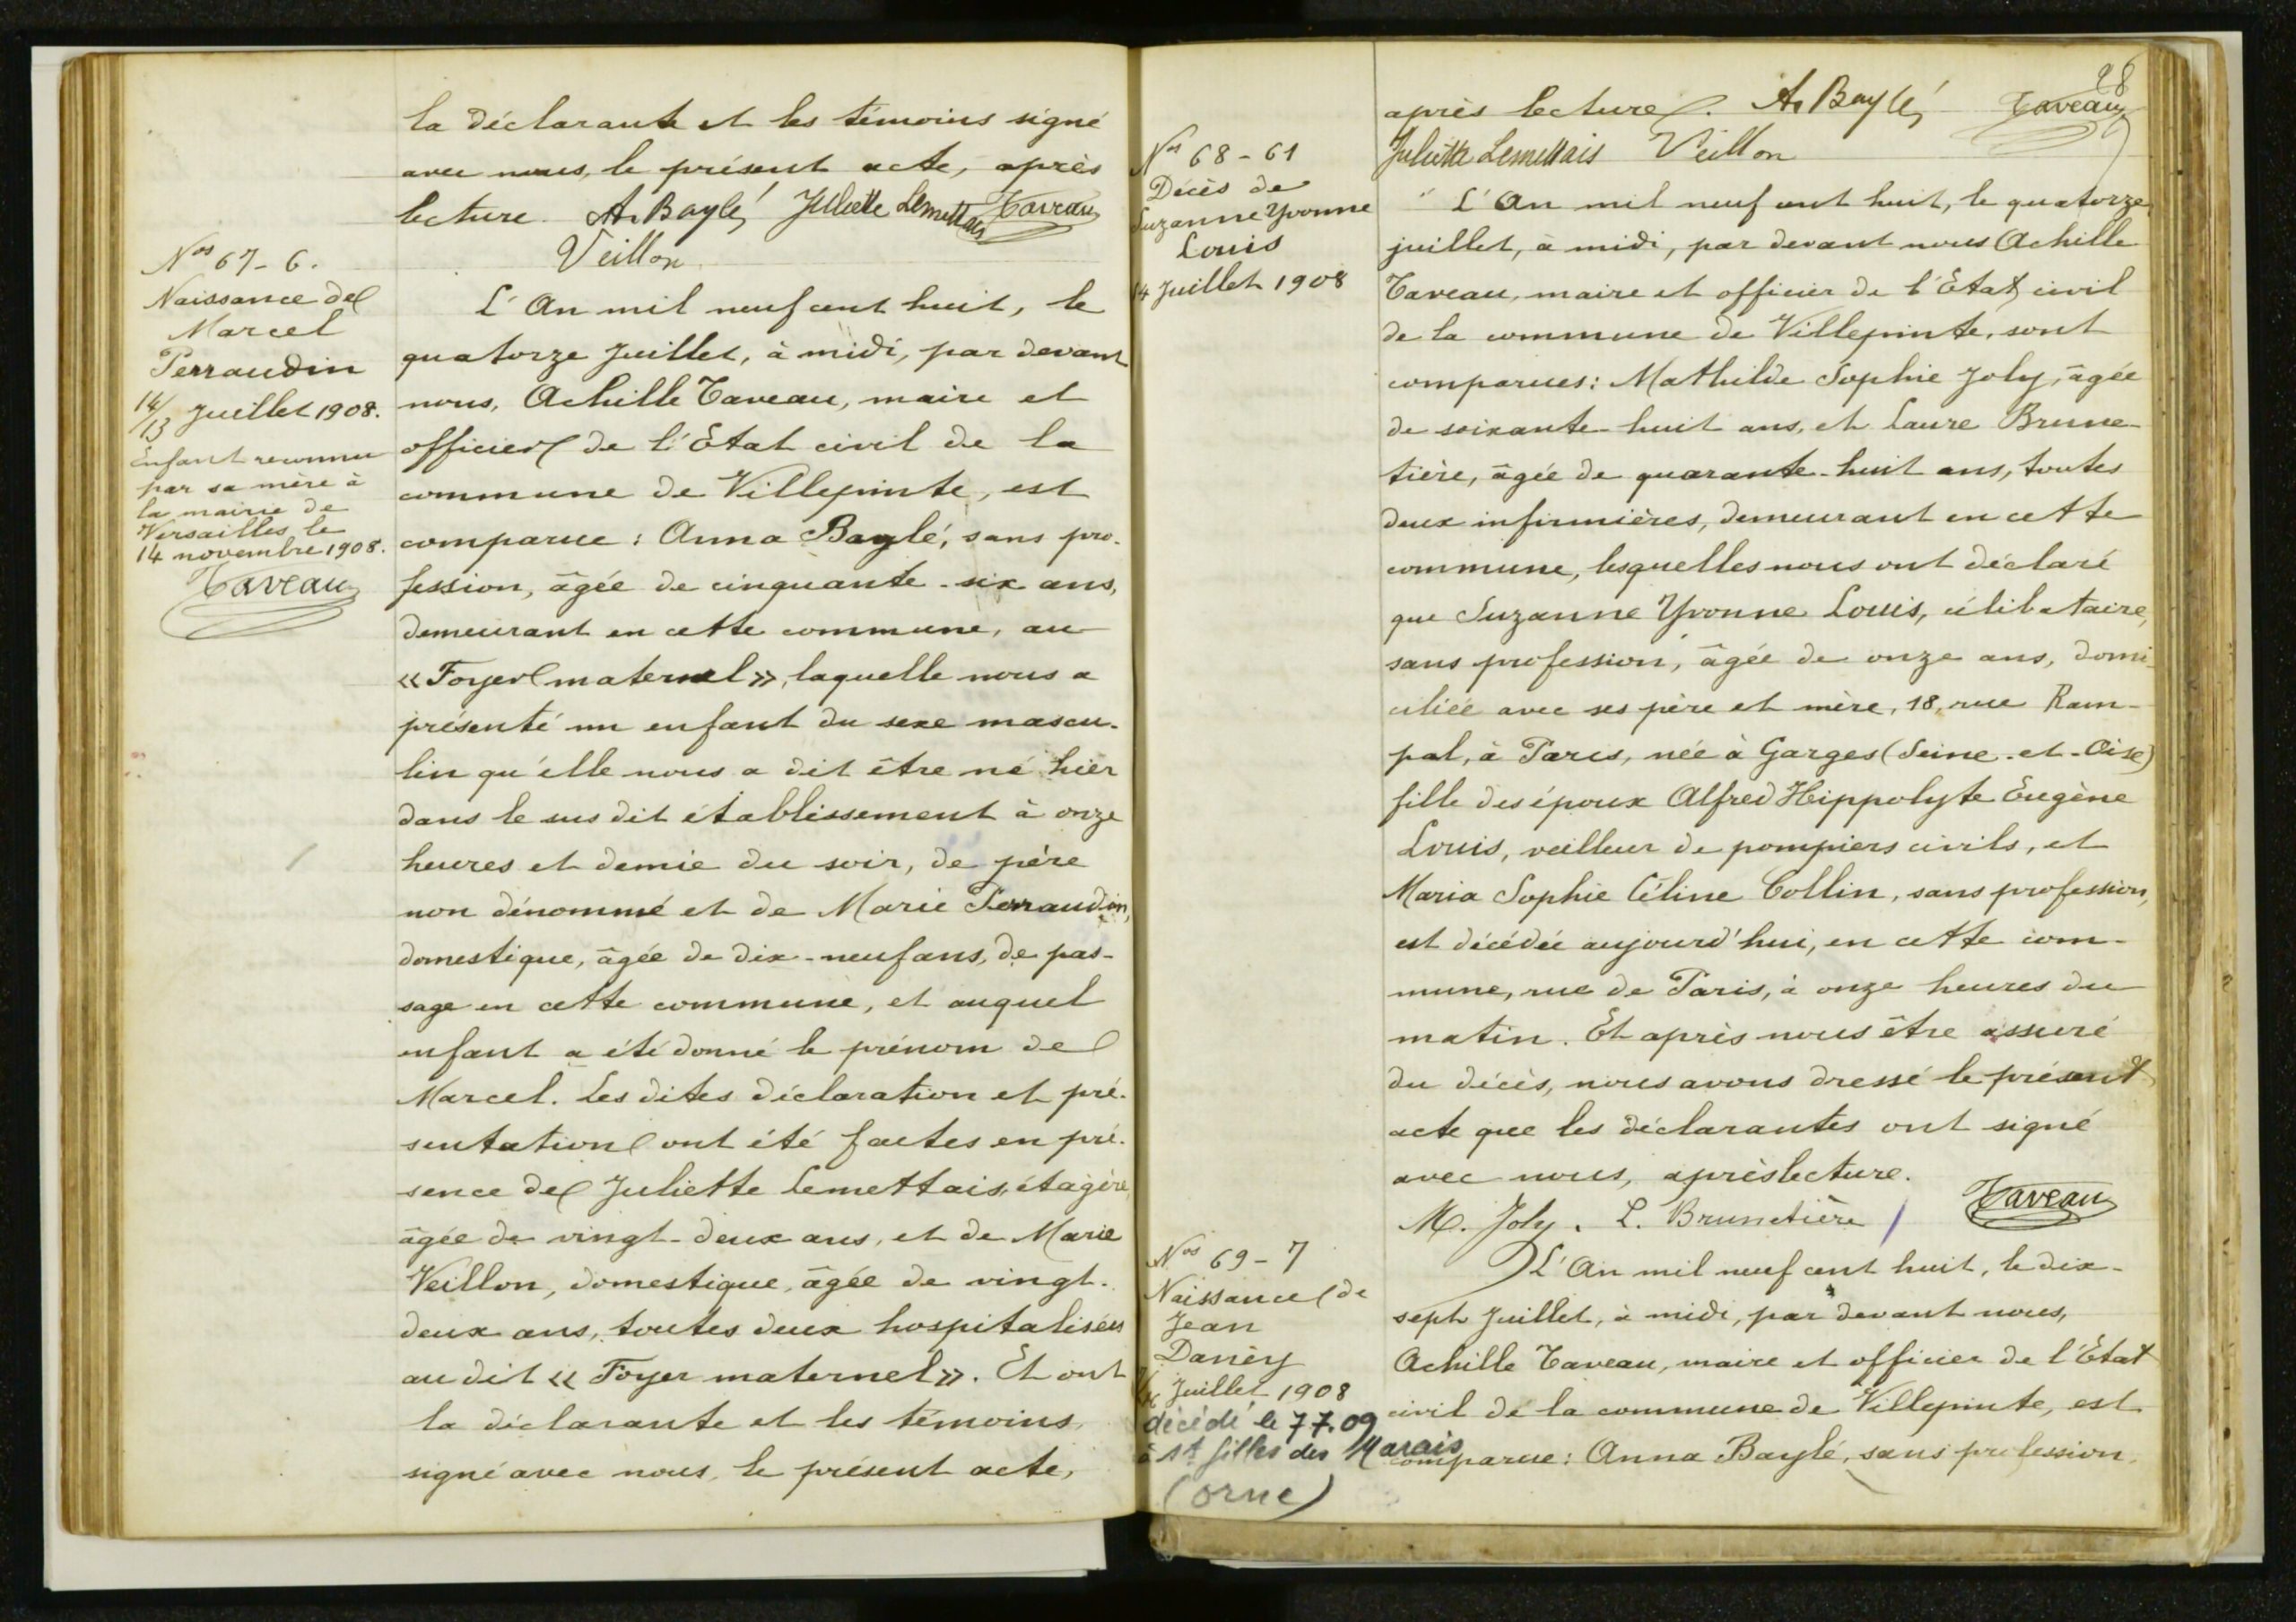 la déclarante et les témoins signé
avec nous, le présent acte, après
lecture. A. Baylé Juliette Lemettais Taveau
Veillon
Nos 67-6.
Naissance de
Marcel
Perraudin
14/13 Juillet 1908.
Enfant reconnu
par sa mère à
la mairie de
Versailles le
14 novembre 1908.
Taveau
L'An mil neuf cent huit, le
quatorze Juillet, à midi, par devant
nous, Achille Taveau, maire et
officier de l'Etat civil de la
commune de Villepinte, est
comparue : Anna Baylé, sans pro-
fession, âgée de cinquante-six ans,
demeurant en cette commune, au
« Foyer maternel », laquelle nous a
présenté un enfant du sexe mascu-
lin qu'elle nous a dit être né hier
dans le sus dit établissement à onze
heures et demie du soir, de père
non dénommé et de Marie Perraudin,
domestique, âgée de dix-neuf ans, de pas-
sage en cette commune, et auquel
enfant a été donné le prénom de
Marcel. Les dites déclaration et pré-
sentation ont été faites en pré-
sence de Juliette Lemettais, étagère,
âgée de vingt-deux ans, et de Marie
Veillon, domestique, âgée de vingt-
deux ans, toutes deux hospitalisées
au dit « Foyer maternel ». Et ont
la déclarante et les témoins,
signé avec nous, le présent acte,
28
après lecture. A. Baylé Taveau
Juliette Lemettais Veillon
Nos 68-61
Décès de
Suzanne Yvonne
Louis
14 Juillet 1908
L'An mil neuf cent huit, le quatorze
juillet, à midi, par devant nous Achille
Taveau, maire et officier de l'Etat civil
de la commune de Villepinte, sont
comparues : Mathilde Sophie Joly, âgée
de soixante-huit ans, et Laure Brune-
tière, âgée de quarante-huit ans, toutes
deux infirmières, demeurant en cette
commune, lesquelles nous ont déclaré
que Suzanne Yvonne Louis, célibataire,
sans profession, âgée de onze ans, domi-
ciliée avec ses père et mère, 18, rue Ram-
pal, à Paris, née à Garges (Seine-et-Oise)
fille des époux Alfred Hippolyte Eugène
Louis, veilleur de pompiers civils, et
Maria Sophie Céline Collin, sans profession,
est décédée aujourd'hui, en cette com-
mune, rue de Paris, à onze heures du
matin. Et après nous être assuré
du décès, nous avons dressé le présent
acte que les déclarantes ont signé
avec nous, après lecture.
M. Joly. L. Brunetière Taveau
Nos 69-7
Naissance de
Jean
Daney
Juillet 1908
décédé le 7.7.09
à St Gilles des Marais
(orne)
L'An mil neuf cent huit, le dix-
sept Juillet, à midi, par devant nous,
Achille Taveau, maire et officier de l'Etat
civil de la commune de Villepinte, est
comparue : Anna Baylé, sans profession,